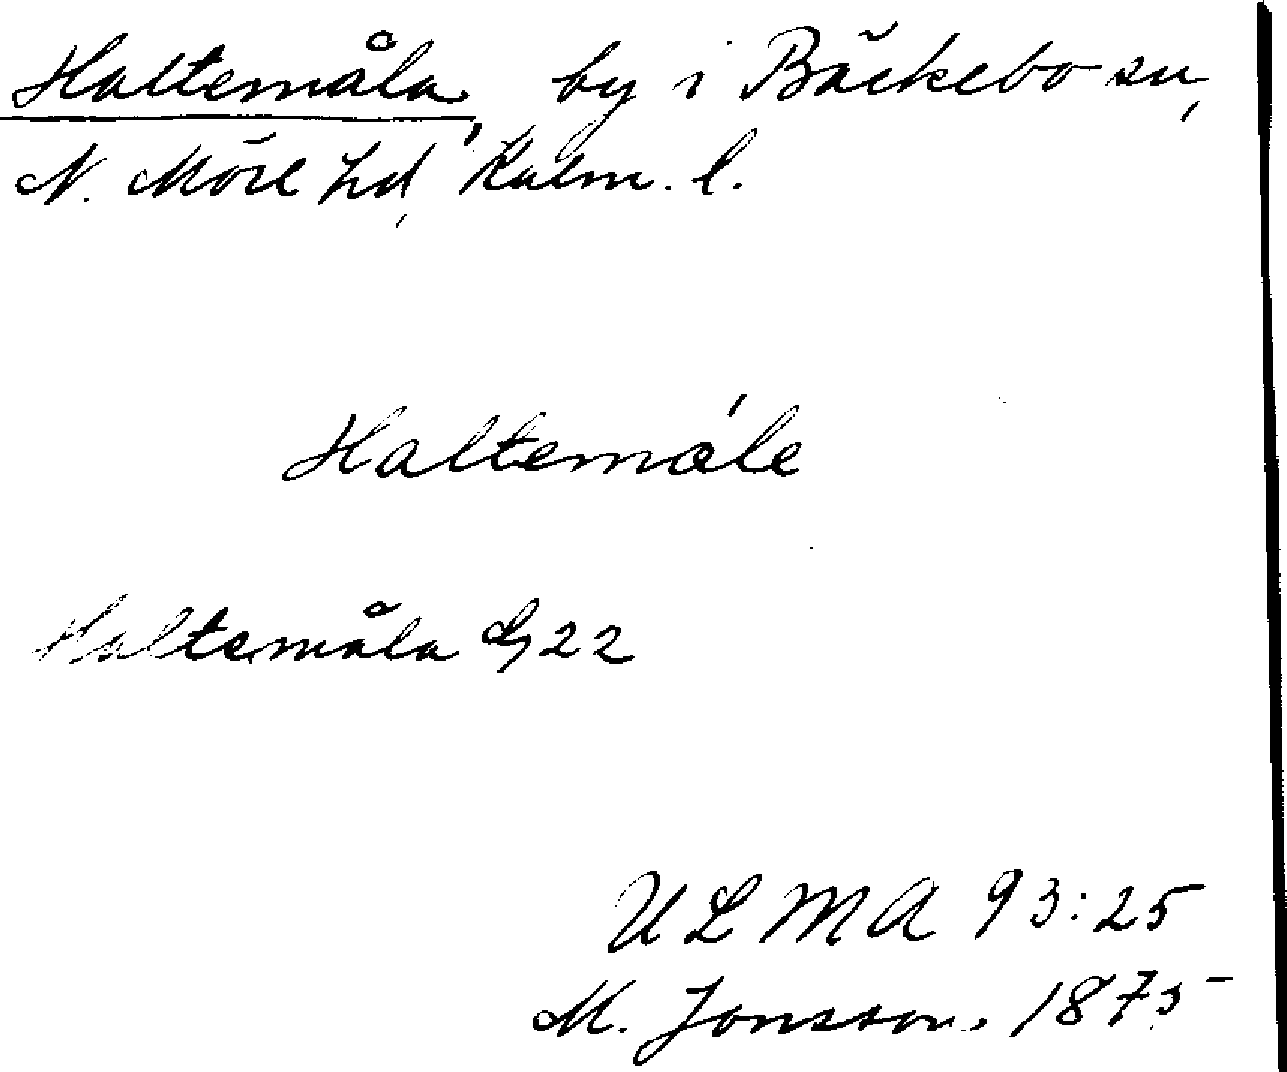 Haltemåla, by i Bäckebo sn,
N. Möre hd, Kalm. l.
Haltemåle
Haltemåla Lg 22
ULMA 93:25
M. Jonsson. 1875